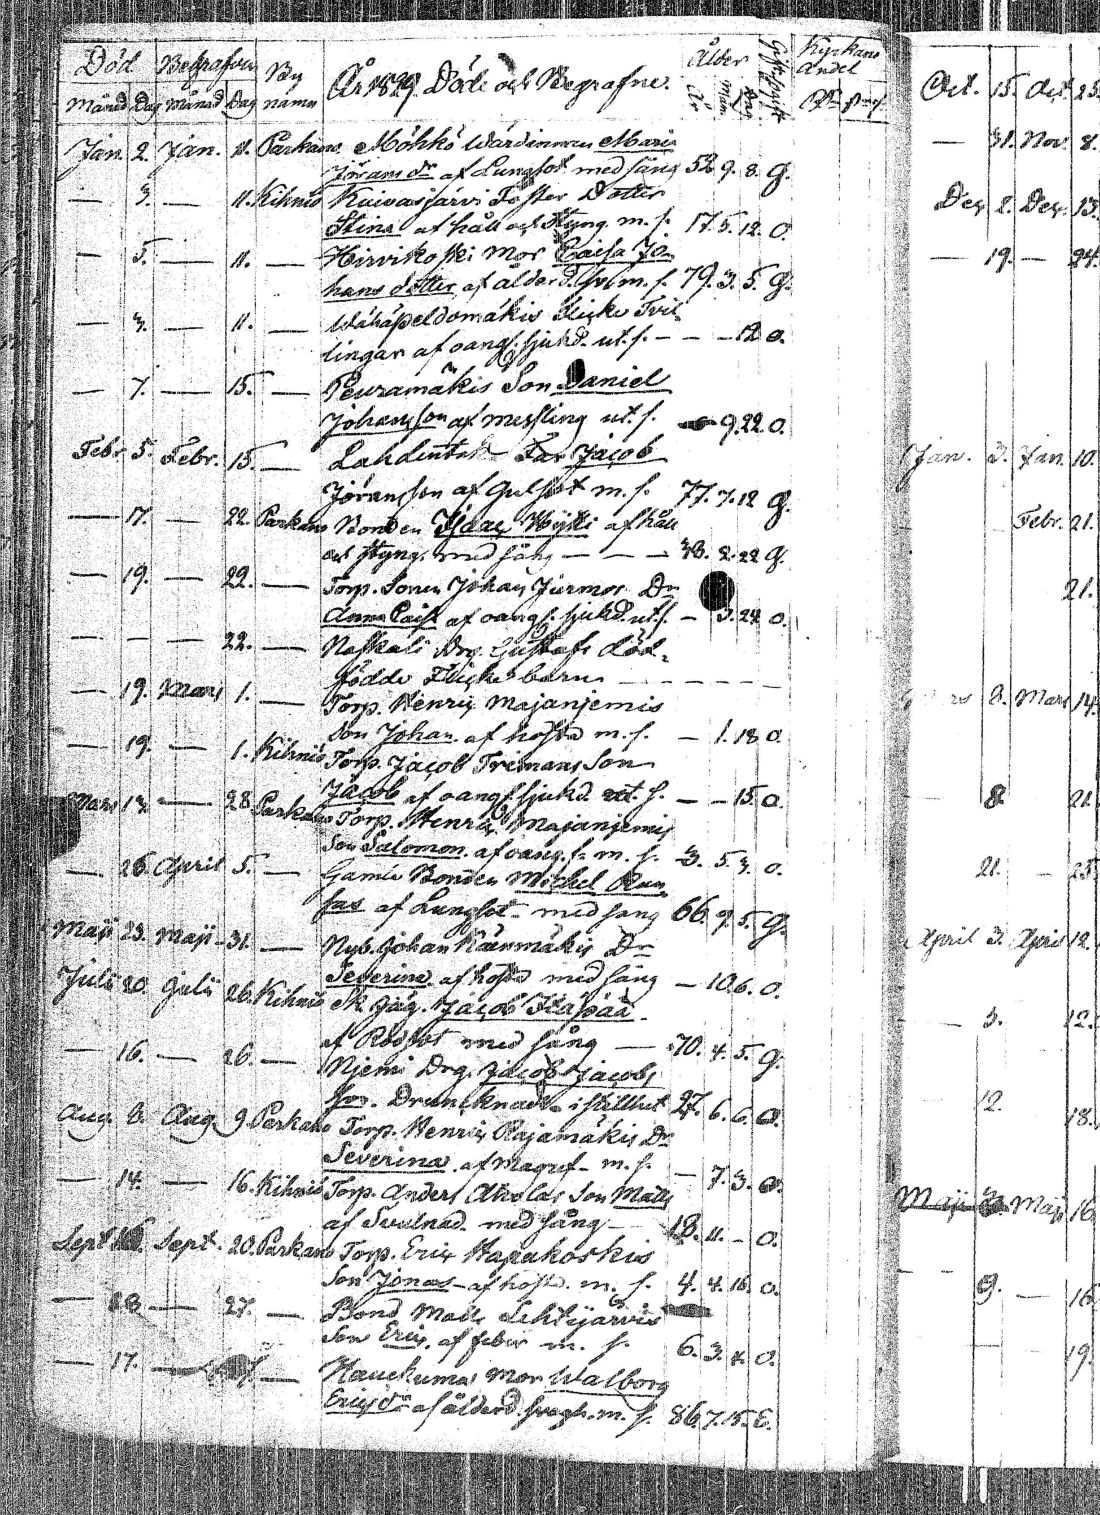 Död Begrafven By År 1829 Döde och Begrafne. Ålder Gift, Ogift Kyrkans Andel
Månad Dag Månad Dag namn År Mån Dag
Jan. 2. Jan. 11. Parkano Möhkö Wärdinnan Maria
Jörans dr af Lungsot med sång 52. 9. 8. G.
— 3. — 11. Kihniö Kuivasjärvi Foster Dotter
Stina af håll och styng m. s. 17. 5. 12. O.
— 5. — 11. — Hirvikoski Mor Caisa Jo-
hans dotter af ålderd. m. s. 79. 3. 5. G.
— 3. — 11. — Wähäpeldomäkis Flicke Tvil-
lingar af oang. sjukd. ut. s. — — — 12 O.
— 7. — 15. — Peuramäkis Son Daniel
Johansson af messling ut. s. — 9. 22. O.
Febr. 5. Febr. 15. — Lahdentak Far Jacob
Jöransson af Gulsot m. s. 77. 7. 12 G.
— 17. — 22. Parkano Bonden Isaac af håll
och styng. med sång — — — 38. 2. 22 G.
— 19. — 22. — Torp. Sonen Johan Dr
Anna Caisa af oang. sjukd. ut. s. — 3. 24 O.
— — — 22. — Drg. Gustafs död-
födde Flicke barn — — — — —
— 19. Mars 1. — Torp. Henric Majanjemis
Son Johan af hosta m. s. — 1. 18 O.
— 19. — 1. Kihniö Torp. Jacob Son
Jacob af oang. sjukd. ut. s. — — 15. O.
Mars 13. — 28. Parkano Torp. Henric Majanjemis
Son Salomon af oang. s. m. s. 3. 5. 3. O.
— 26. April 5. — Gamle Bonden Michel
af Lungsot med sång 66. 9. 5. G.
Maji 23. Maji 31. — Nyb. Johan Dr
Severina af hosta med sång — 10. 6. O.
Julii 20. Julii 26. Kihniö Sk. Jäg. Jacob
af Rödsot med sång — 70. 4. 5. G.
— 16. — 26. — Njemi Drg. Jacob Jacobs
son. Drunknade i stillhet 27. 6. 6. O.
Aug. 8. Aug. 9. Parkano Torp. Henric Rajamäkis Dr
Severina af Magref m. s. — 7. 3. O.
— 14. — 16. Kihniö Torp. Anders Aholas Son Matts
af Svulnad med sång — 18. 11. — O.
Sept. Sept. 20. Parkano Torp. Eric Hapakoskis
Son Jonas af hosta m. s. 4. 4. 16. O.
— 18. — 27. — Bond. Matts Lehtijärvis
Son Eric af feber m. s. 6. 3. O.
— 17. — — Mor Walborg
Ericsdr af ålderd. svagh. m. s. 86. 7. 15. E.
Oct. 15. Oct. 25.
— 31. Nov. 8.
Dec. 2. Dec. 13.
— 19. — 24.
Jan. 3. Jan. 10.
Febr. 21.
21.
8. Mars 14.
— 8. 21.
21. — 25.
April 3. April 12.
— 5. 12.
— 12. 18.
Maji Maji 16.
— 9. — 16.
— 19.